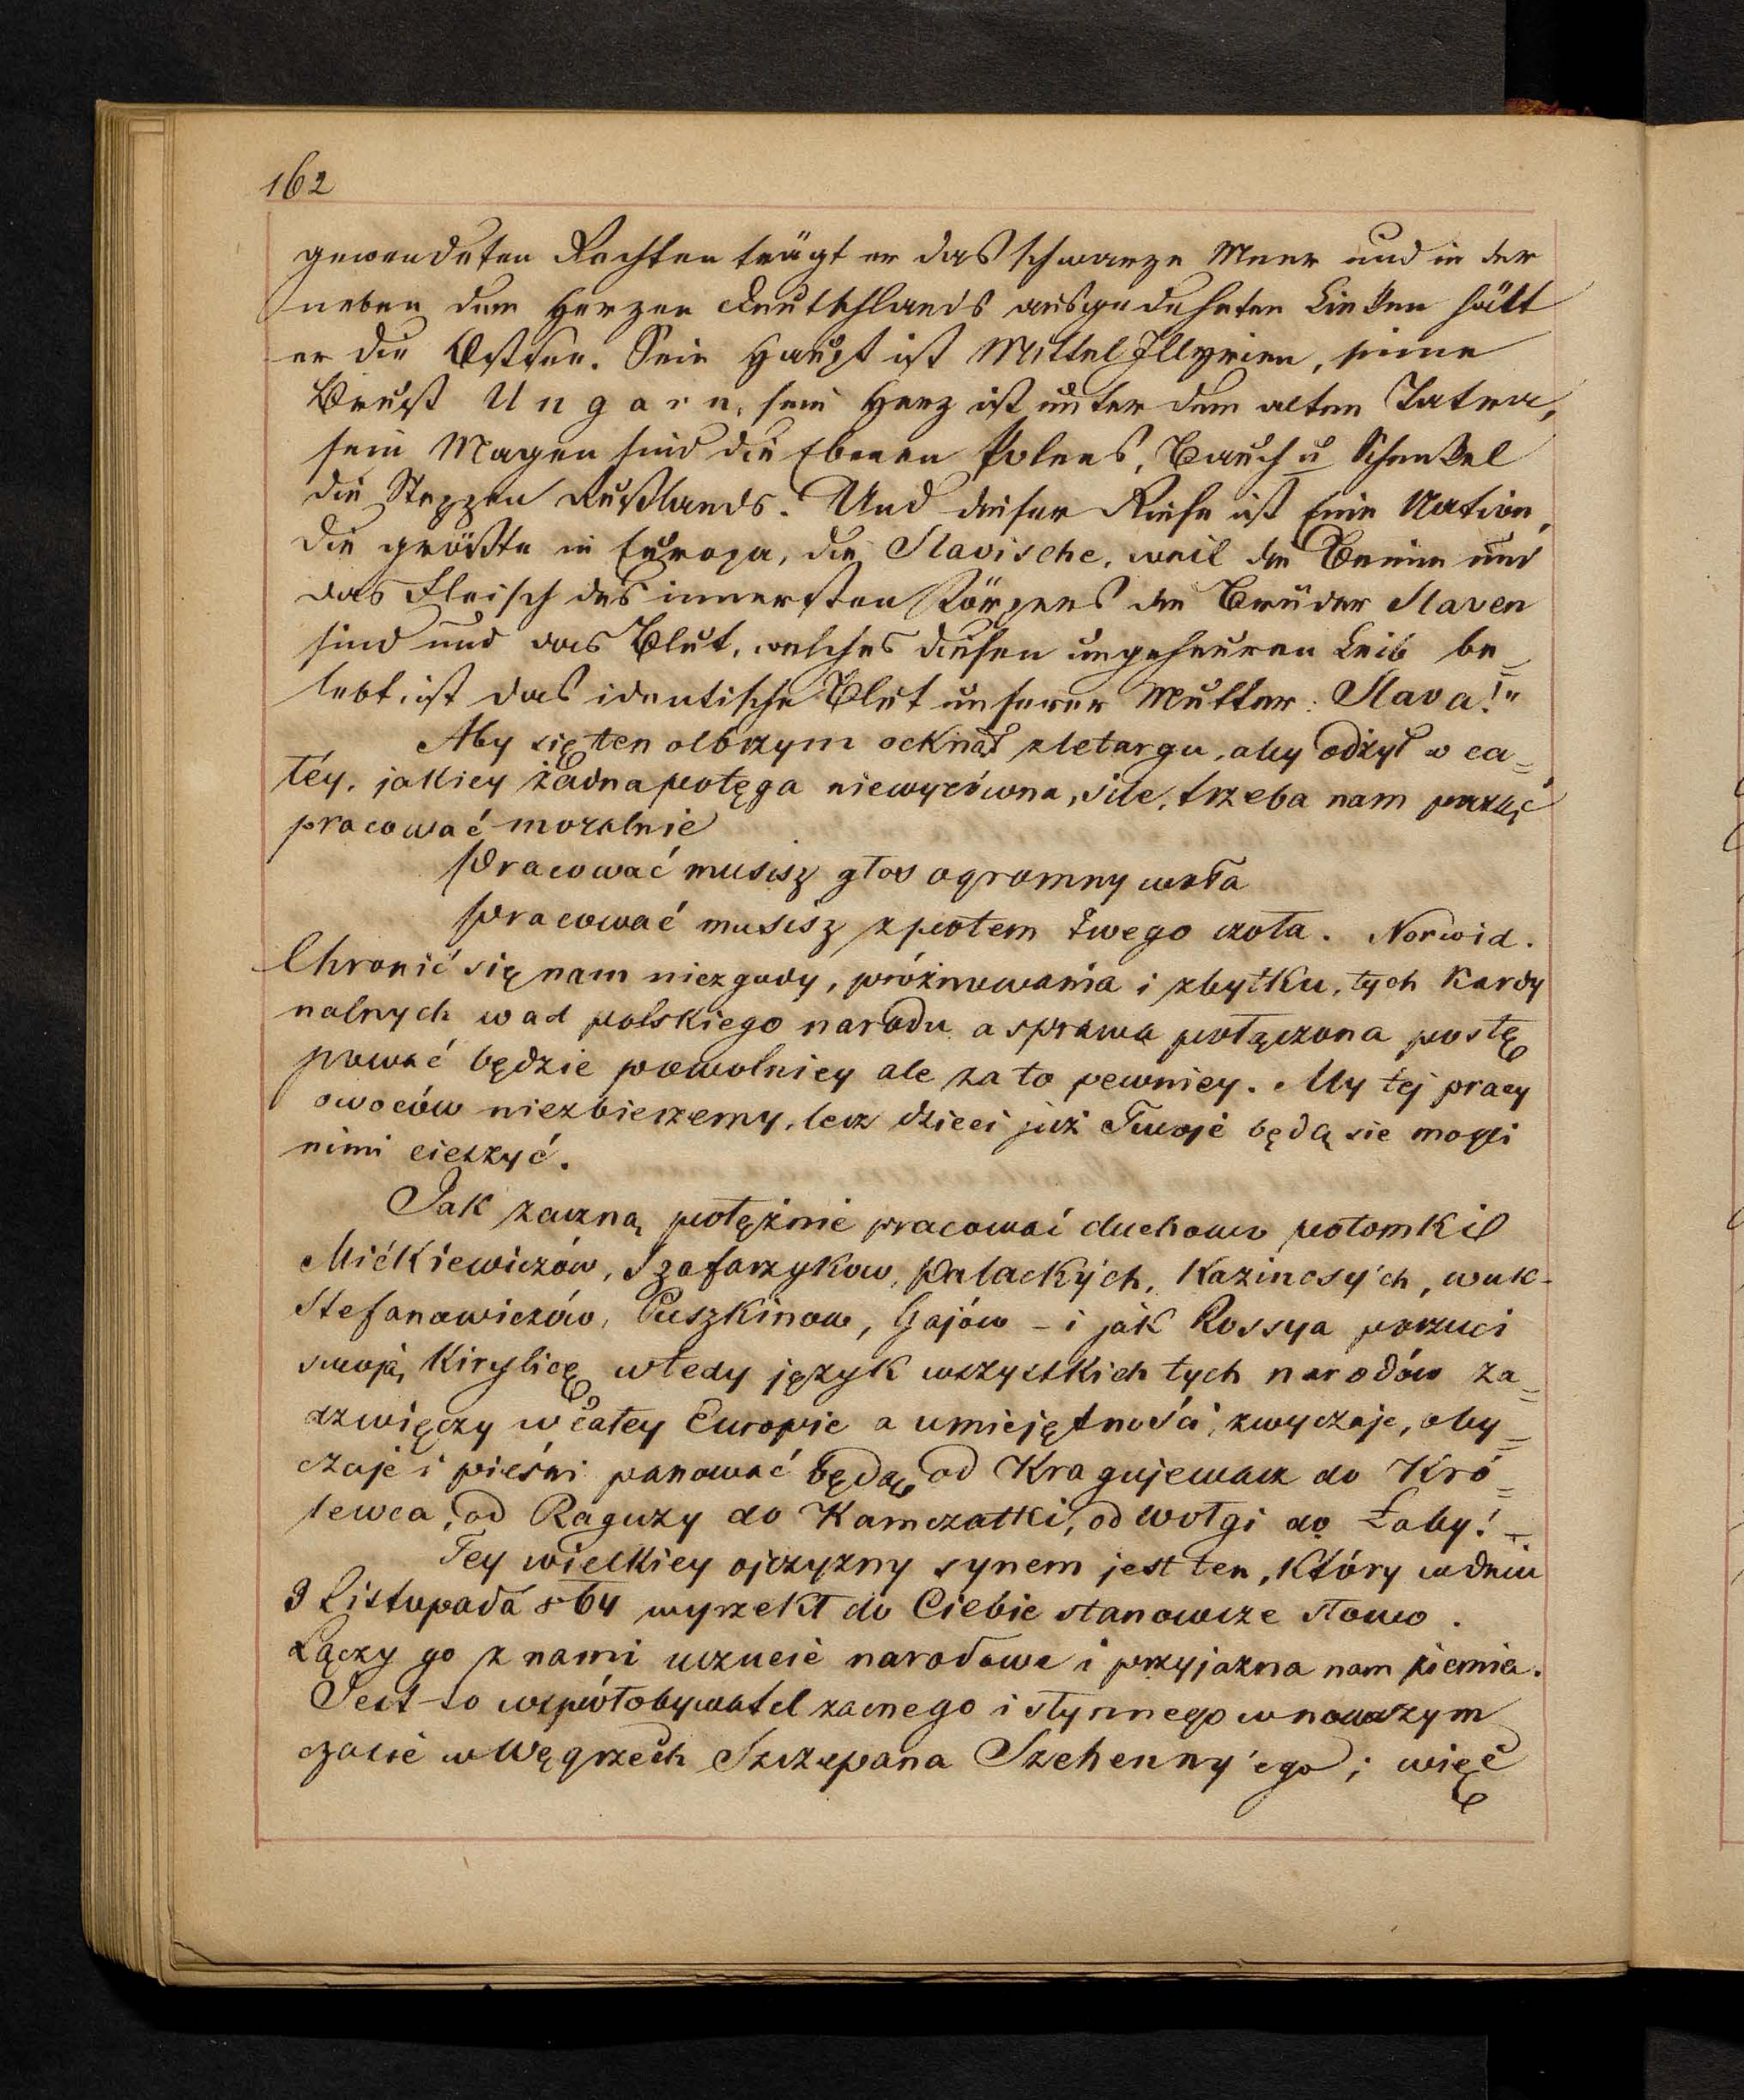 162
gewendeten Rechten trägt er das schwarze Meer und in der
neben dem Herzen Deutschlands ausgedehnten Linken hält
er die Ostsee. Sein Haupt ist Mittel Illyrien, seine
Brust Ungarn, sein Herz ist unter dem alten Tatra,
sein Magen sind die Ebenen Polens, Bauch u Schenkel
die Steppen Rußlands. Und dieser Riese ist Eine Nation,
die größte in Europa, die Slavische, weil die Beine und
das Fleisch des innersten Körpers die Brüder Slaven
sind und das Blut, welches diesen ungeheuren Leib be=
lebt, ist das identische Blut unserer Mutter: Slava!"
Aby się ten olbrzym ocknął z letargu, aby odżył w ca=
łéy, jakiey żadna potęga niewyrówna, sile, trzeba nam
pracować moralnie
Pracować musisz głos ogromny woła
Pracować musisz z potem twego czoła. Norwid.
Chronić się nam niezgody, próżnowania i zbytku, tych kardy
nalnych wad polskiego narodu a sprawa połączona postę
pować będzie powolniey ale za to pewniey. My tej pracy
owoców niezbierzemy, lecz dzieci już Twoje będą sie mogli
nimi cieszyć.
Jak zaczną potężnie pracować duchowo potomki
Mićkiewiczów, Szafarzykow, Palackých, Kazincsy'ch, wuk-
Stefanowiczów, Puszkinow, Gajów - i jak Rossya porzuci
swoją Kirylicę wtedy język wszystkich tych narodów za=
dzwięczy w całey Europie a umiejętności, zwyczaje, oby=
czaje i pieśni panować będą od Kragujewacz do Kró=
lewca, od Raguzy do Kamczatki, od Wołgi do Łaby! -
Tey wielkiey ojczyzny synem jest ten, który w dniu
9 Listopada 864 wyrzekł do Ciebie stanowcze słowo.
Łączy go z nami uczucie narodowe i przyjazna nam ziemia.
Jest to współobywatel zacnego i słynnego w nowszym
czasie w Węgrzech Szczepana Szehenny'ego; więc